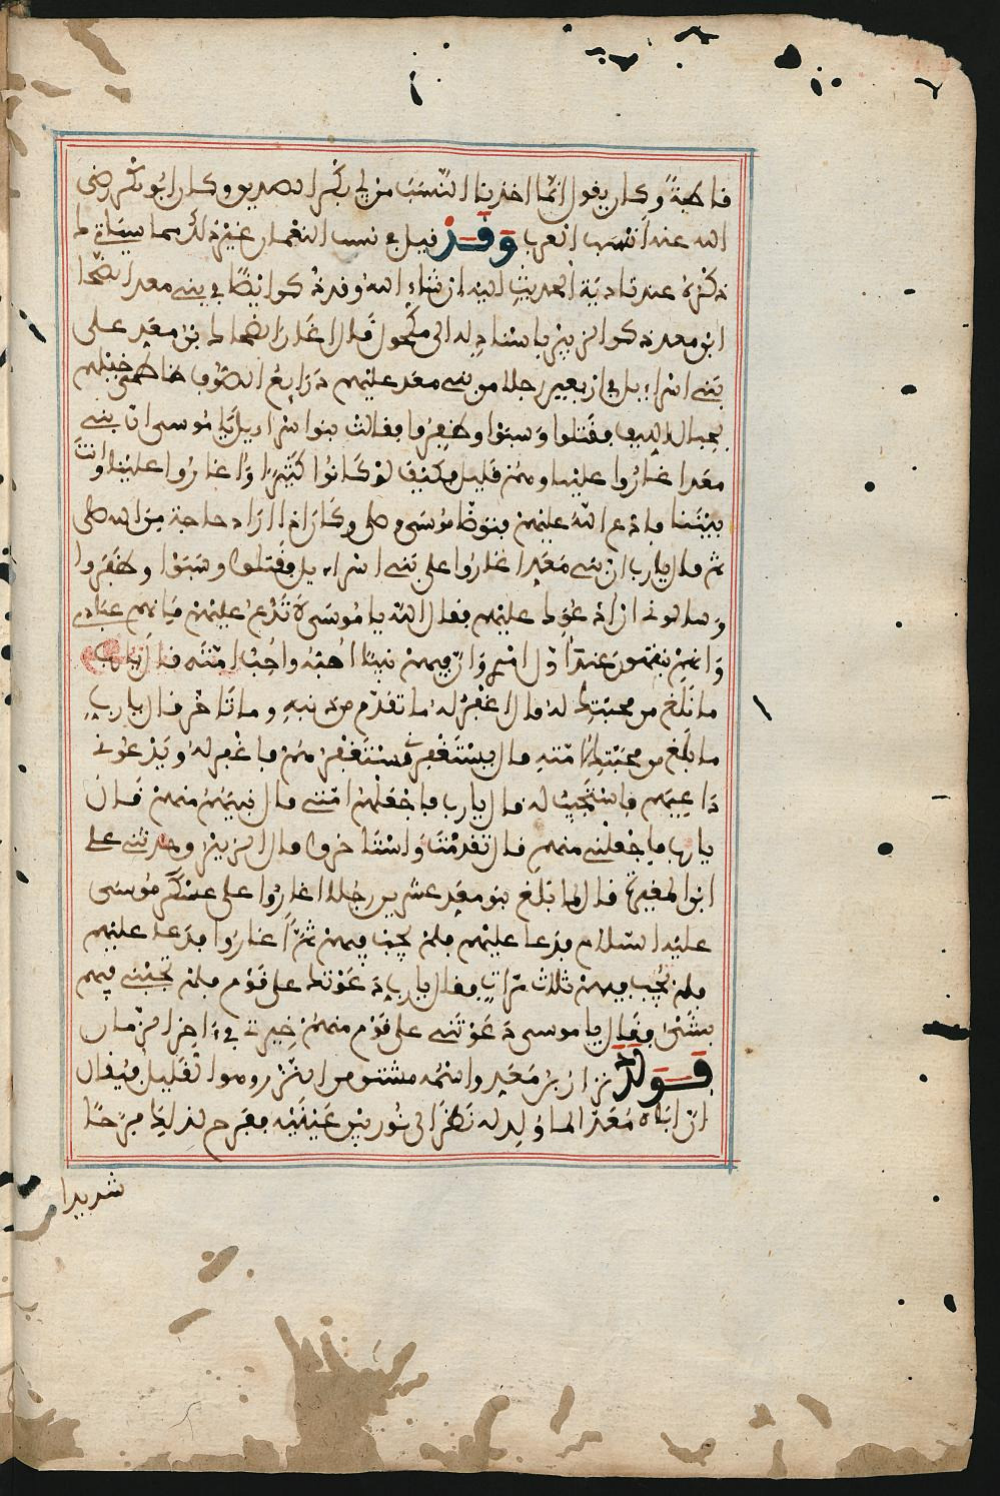 فاطمة وكان يقول إنما أخذنا النسب من أبي بكر الصديق وكان أبو بكر رضي
الله عنه أنسب العرب وقد قيل في نسب النعمان غير ذلك مما سياتي
ذكره عند تادية الحديث إليه إن شاء الله وقد ذكر أيضا في بني معد الضحاك
ابن معد ذكر الزبير باسناد له إلى مكحول قال أغار الضحاك بن معد على
بني إسراءيل في أربعين رجلا من بني معد عليهم دراريع الصوف خاطمي خيلهم
بحبال الليف فقتلوا وسبوا وظفروا فقالت بنوا إسراءيل يا موسى إن بني
معد أغاروا علينا وهم قليل فكيف لو كانوا كثيرا وأغاروا علينا وأنت
بيننا فادع الله عليهم فتوضا موسى وصلى وكان إذا أراد حاجة من الله صلى
ثم قال يا رب إن بني معد أغاروا على بني إسراءيل فقتلوا وسبوا وظفروا
وسالوني أن أدعو عليهم فقال الله يا موسى لا تدع عليهم فإنهم عبادي
وإنهم ينتهون عند أول أمري وإن فيهم نبيئا أحبه وأحب أمته قال يا رب
ما بلغ من محبتك له قال أغفر له ما تقدم من ذنبه وما تأخر قال يا رب
ما بلغ من محبتك لأمته قال يستغفرني مستغفرهم فأغفر له ويدعوني
داعيهم فأستجيب له قال يا رب فاجعلهم أمتي قال نبيهم منهم قال
يا رب فاجعلني منهم قال تقدمت واستاخروا قال الزبير وحدثني علي
ابن المغيرة قال لما بلغ بنو معد عشرين رجلا أغاروا على عسكر موسى
عليه السلام فدعا عليهم فلم يجب فيهم ثم أغاروا فدعا عليهم
فلم يجب فيهم ثلاث مرات فقال يا رب دعوتك على قوم فلم تجبني فيهم
بشيء فقال يا موسى دعوتني على قوم منهم خيرتي في آخر الزمان
قوله نزار بن معد واسمه مشتق من النزر وهو القليل فيقال
إن أباه معد لما ولد له نظر إلى نور بين عينيه ففرح لذلك فرحا
شديدا